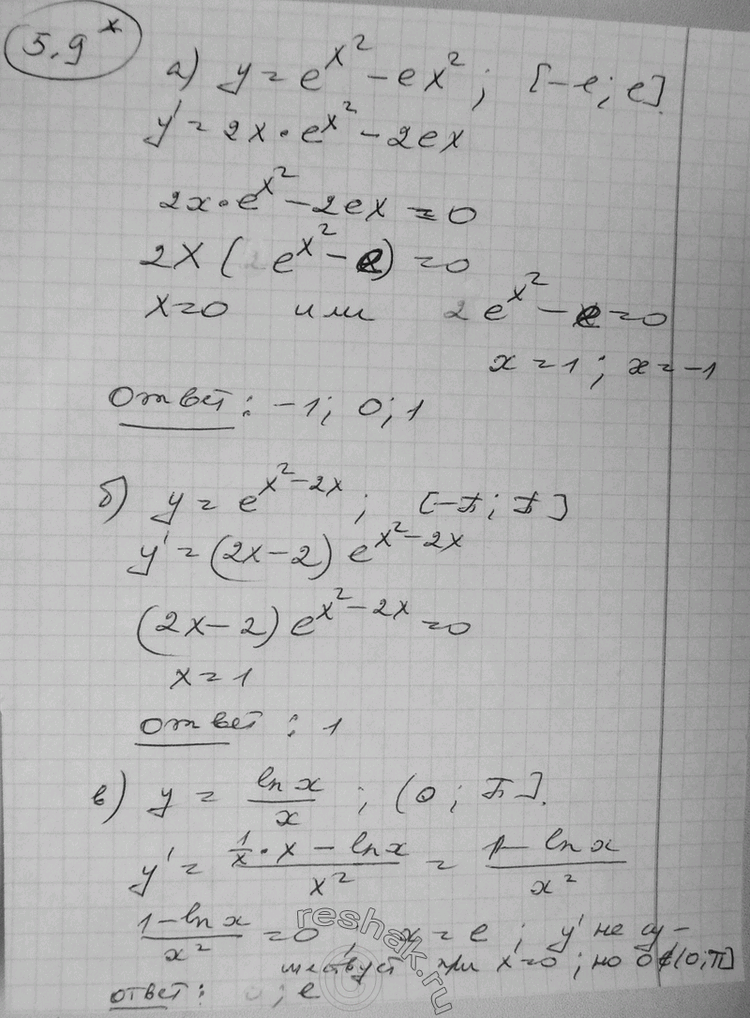 5.9*
а) y = e^{x^2} - ex^2 ; [-e; e].
y' = 2x·e^{x^2} - 2ex
2x·e^{x^2} - 2ex = 0
2x(e^{x^2} - e) = 0
x=0 или e^{x^2} - e = 0
x = 1 ; x = -1
Ответ: -1; 0; 1
б) y = e^{x^2-2x} ; [-π; π]
y' = (2x-2) e^{x^2-2x}
(2x-2) e^{x^2-2x} = 0
x = 1
ответ : 1
в) y = \frac{ln x}{x} ; (0 ; π].
y' = \frac{\frac{1}{x}·x - ln x}{x^2} = \frac{1 - ln x}{x^2}
\frac{1-ln x}{x^2} = 0 ; x = e ; y' не су-
ществует при x=0 ; но 0∉(0;π]
ответ: e
reshak.ru